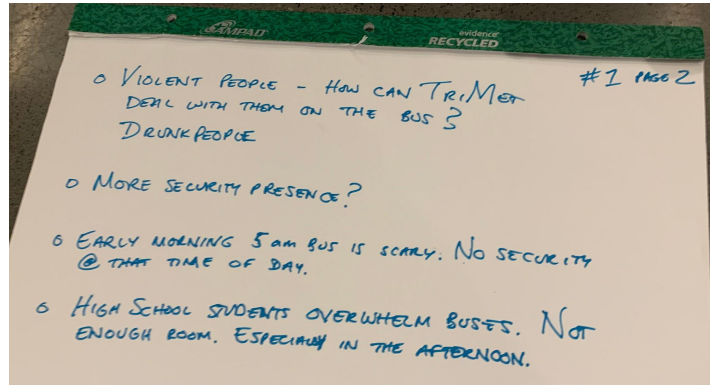 AMPAD
evidence
RECYCLED
#1 PAGE 2
o VIOLENT PEOPLE - HOW CAN TRIMET
DEAL WITH THEM ON THE BUS?
DRUNK PEOPLE
o MORE SECURITY PRESENCE?
o EARLY MORNING 5 am BUS IS SCARY. NO SECURITY
@ THAT TIME OF DAY.
o HIGH SCHOOL STUDENTS OVERWHELM BUSES. NOT
ENOUGH ROOM. ESPECIALLY IN THE AFTERNOON.